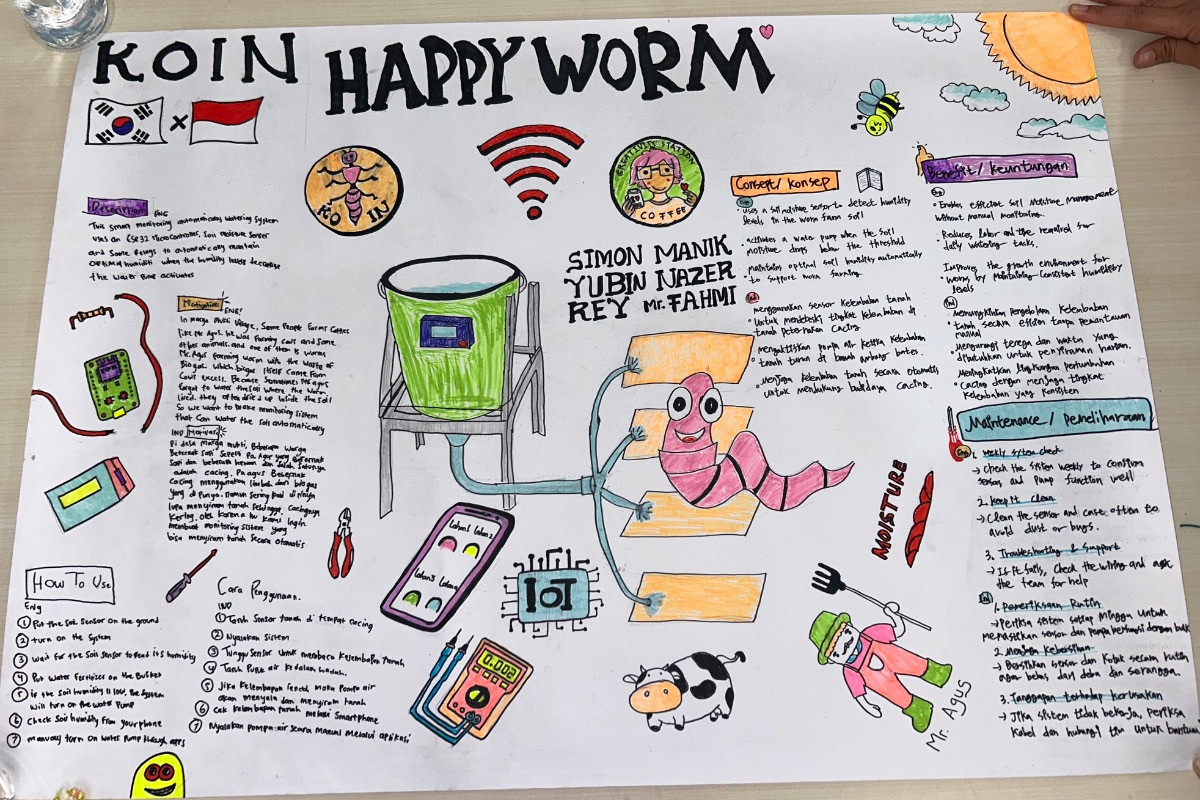 KOIN
HAPPY WORM
KO IN
CREATIVE STATION
COFFEE
SIMON MANIK
YUBIN NAZER
REY Mr. FAHMI
Description ENG
This smart monitoring automaticaly watering system
uses an ESP32 Microcontroller, Soil moisture Sensor
and Some Relays to automatically maintain
optimal humidity when the humidity
the water pump activates
Motivation ENG
In marga Multi Village, Some People Farms Cattles
like Mr Agus. he was farming cows and Some
other animals, and one of them is worms
Mr. Agus farming worm with the waste of
Biogas which biogas itself came from
Cows excess. Because Sometimes Mr agus
forgot to water the soil where the worms
lived, they often dried up inside the soil
So we want to make monitoring sistem
that can water the soil automaticaly
IND Motivasi
Di desa Marga mukti, Beberapa warga
Beternak Sapi seperti Pa Agus yang Beternak
Sapi dan beberapa hewan dan Salah Satunya
adalah cacing. Pa agus Beternak
Cacing menggunakan limbah dari biogas
yang di punya. namun sering pa
lupa menyiram tanah sehingga cacingnya
kering. oleh karena itu kami ingin
membuat monitoring sistem yang
bisa menyiram tanah Secara Otomatis
How To Use
Eng
1 Put the Soil Sensor on the ground
2 turn on the System
3 wait for the Soil sensor to Read it's humidity
4 Put Water Fertilizer on the Bucket
5 if the Soil humidity is low, the System
will turn on the water Pump
6 Check Soil humidity from your phone
7 manualy turn on Water Pump through apps
Cara Penggunaan.
IND
1 Taruh Sensor tanah di tempat cacing
2 Nyalakan Sistem
3 Tunggu Sensor Untuk membaca Kelembapan Tanah
4 Taruh Pupuk air Kedalam wadah.
5 Jika Kelembapan rendah maka Pompa air
akan menyala dan menyiram tanah
6 Cek Kelembapan tanah melalui Smartphone
7 Nyalakan pompa air Secara Manual Melalui aplikasi
Lahan1 Lahan2
Lahan3 Lahan4
IoT
0.002
Consept / Konsep
• Uses a soil moisture sensor to detect humidity
levels in the worm farm soil
• activates a water pump when the soil
moisture drops below the threshold
• maintains optimal soil humidity automatically
to support worm farming.
menggunakan sensor Kelembaban tanah
• Untuk mendeteksi tingkat kelembaban di
tanah peternakan Cacing.
• Mengaktifkan pompa air ketika Kelembaban
tanah turun di bawah ambang batas.
• Menjaga Kelembaban tanah secara otomatis
untuk mendukung budidaya Cacing.
Benefit / Keuntungan
Eng
• Enables efficient soil Moisture Management
without manual monitoring.
Reduces labor and time required for
• daily watering tasks.
Improves the growth environment for
• worms by Maintaining Consistent humidity
levels
Memungkinkan Pengelolaan Kelembaban
• tanah secara efisien tanpa pemantauan
manual
Mengurangi tenaga dan waktu yang
• dibutuhkan untuk penyiraman harian.
Meningkatkan lingkungan pertumbuhan
• Cacing dengan menjaga tingkat
Kelembaban yang Konsisten
Maintenance / Pemeliharaan
Eng
1. Weekly system check
→ Check the System weekly to confirm
sensor and Pump function well
2. Keep It Clean
→ Clean the sensor and case often to
avoid dust or bugs.
3. Troubleshooting & Support
→ If it fails, check the wiring and ask
the team for help
1. Pemeriksaan Rutin
→ Periksa sistem setiap Minggu untuk
memastikan sensor dan pompa berfungsi dengan baik
2. Menjaga Kebersihan
→ Bersihkan sensor dan Kotak secara rutin
agar bebas dari debu dan serangga.
3. Tanggapan terhadap Kerusakan
→ Jika sistem tidak bekerja, periksa
Kabel dan hubungi tim untuk bantuan
MOISTURE
Mr. Agus